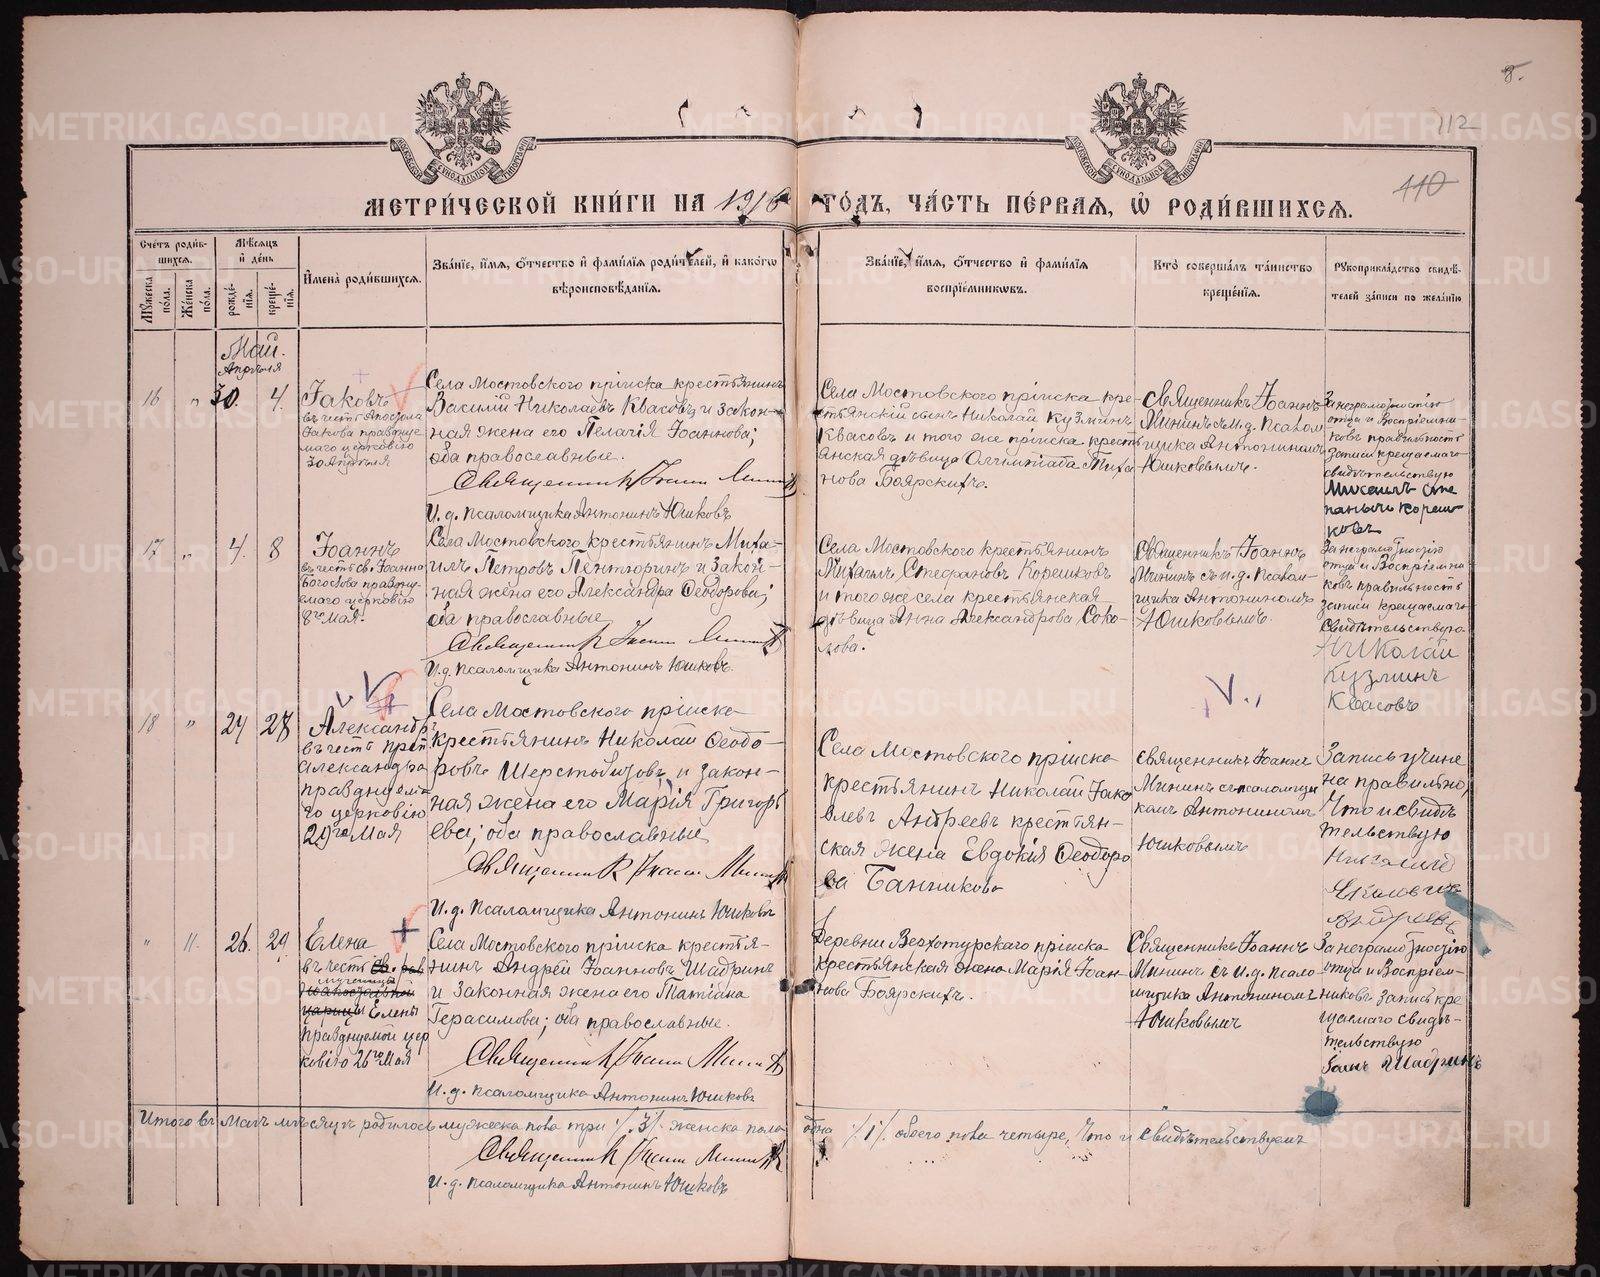 8.
112
110
МЕТРИ́ЧЕСКОЙ КНИ́ГИ НА 1916 ГО́ДЪ, ЧА́СТЬ ПЕ́РВАЯ, Ѡ РОДИ́ВШИХСЯ.
Сче́тъ роди́в-
шихся.
Мꙋжеска по́ла.
Же́нска по́ла.
Мѣ́сяцъ
и҆ де́нь
рожде́-
нїя.
креще́-
нїя.
И҆мена̀ роди́вшихся.
Зва́нїе, и҆́мя, ѻ҆́тчество и҆ фами́лїя роди́телей, и҆ како́гѡ
вѣроисповѣ́данїя.
Зва́нїе, и҆́мя, ѻ҆́тчество и҆ фами́лїя
воспрїе́мникѡвъ.
Кто̀ соверша́лъ та́инство
креще́нїя.
Рꙋкоприкла́дство свидѣ́-
телей за́писи по жела́нїю
Май.
Апрѣля
16 " 30. 4.
Іаковъ
въ честь Апостола
Іакова празднуе-
маго церковію
30 Апрѣля
Села Мостовского пріиска крестьянинъ
Василій Николаевъ Квасовъ и закон-
ная жена его Пелагія Іоаннова;
оба православные.
Священникъ Іоаннъ Мининъ
И. д. псаломщика Антонинъ Юшковъ
Села Мостовского пріиска кре-
стьянскій сынъ Николай Кузминъ
Квасовъ и того же пріиска кресть-
янская дѣвица Олимпіада Миха
нова Боярскихъ.
Священникъ Іоаннъ
Мининъ съ и. д. псалом-
щика Антониномъ
Юшковымъ.
За неграмотностію
отца и Воспріемни-
ковъ правильность
записи крещаемаго
свидѣтельствую
Михаилъ Сте
панычъ Кореш-
ковъ
17 " 4. 8
Іоаннъ
въ честь св. Іоанна
Богослова праздну-
емаго церковію
8го Мая.
Села Мостовского крестьянинъ Миха-
илъ Петровъ Пентюринъ и закон-
ная жена его Александра Ѳеодорова;
оба православные
Священникъ Іоаннъ Мининъ
И. д. псаломщика Антонинъ Юшковъ.
Села Мостовского крестьянинъ
Михаилъ Стефановъ Корешковъ
и того же села крестьянская
дѣвица Анна Александрова Соко-
лова.
Священникъ Іоаннъ
Мининъ съ и. д. псалом-
щика Антониномъ
Юшковымъ.
За неграмотностію
отца и Воспріемни
ковъ правильность
записи крещаемаго
Свидѣтельствую
Николай
Кузминъ
Квасовъ
18 " 24 27
Александръ
въ честь преп.
Александра
празднуема
го церковію
29го Мая
Села Мостовского пріиска
крестьянинъ Николай Ѳеодо-
ровъ Шерстобитовъ и закон-
ная жена его Марія Григорь
ева; оба православные
Священникъ Іоаннъ Мининъ
И. д. псаломщика Антонинъ Юшковъ
Села Мостовского пріиска
крестьянинъ Николай Іако
влевъ Андреевъ крестьян-
ская жена Евдокія Ѳеодоро
ва Банникова
Священникъ Іоаннъ
Мининъ съ псаломщи
комъ Антониномъ
Юшковымъ
Запись учине
на правильно,
Что и свидѣ
тельствую
Николай
Яковлевъ
Андреевъ
" 11. 26. 29.
Елена
въ честь св. рав
мученицы
ноапостольной
царицы Елены
празднуемой цер
ковію 26го Мая
Села Мостовского пріиска крестья-
нинъ Андрей Іоанновъ Шадринъ
и законная жена его Татіана
Герасимова; оба православные.
Священникъ Іоаннъ Мининъ
И. д. псаломщика Антонинъ Юшковъ
Деревни Верхотурскаго пріиска
крестьянская жена Марія Іоан-
нова Боярскихъ.
Священникъ Іоаннъ
Мининъ съ И. д. псало-
мщика Антониномъ
Юшковымъ
За неграмотностію
отца и Воспріем-
никовъ запись кре
щаемаго свидѣ-
тельствую
Іоаннъ Шадринъ
Итого въ Маѣ мѣсяцѣ родилось мужеска пола три /.3/. женска пола одна /.1/. обоего пола четыре, Что и Свидѣтельствуемъ
Священникъ Іоаннъ Мининъ
И. д. псаломщика Антонинъ Юшковъ
METRIKI.GASO-URAL.RU